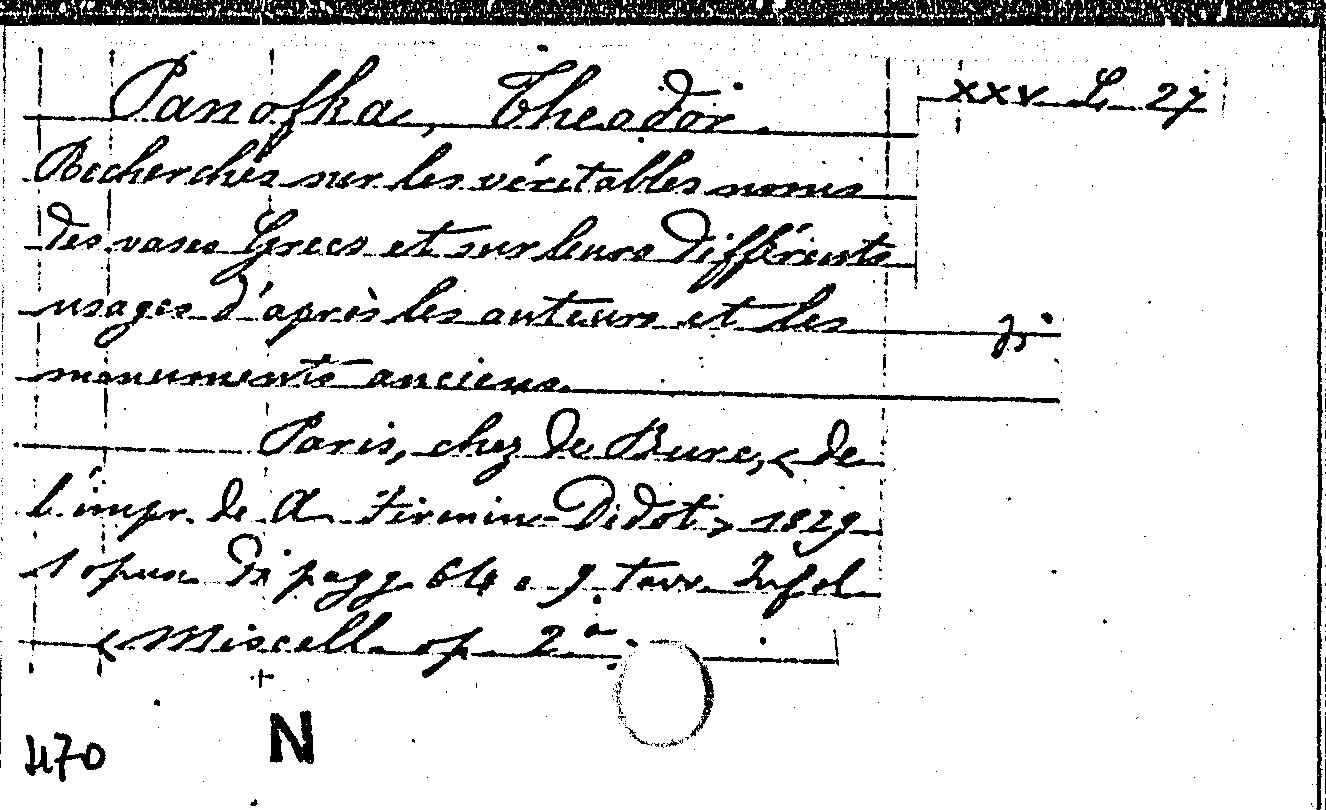 Panofka, Theodor. XXV. L. 27
Recherches sur les véritables noms
des vases Grecs et sur leurs différents
usages d'après les auteurs et les
monuments anciens.
Paris, chez de Bure, < de
l'impr. de A. Firmin-Didot > 1829
1 opusc. di pagg. 64 e 9 tavv. In fol.
< Miscell. op. 2°
470 N